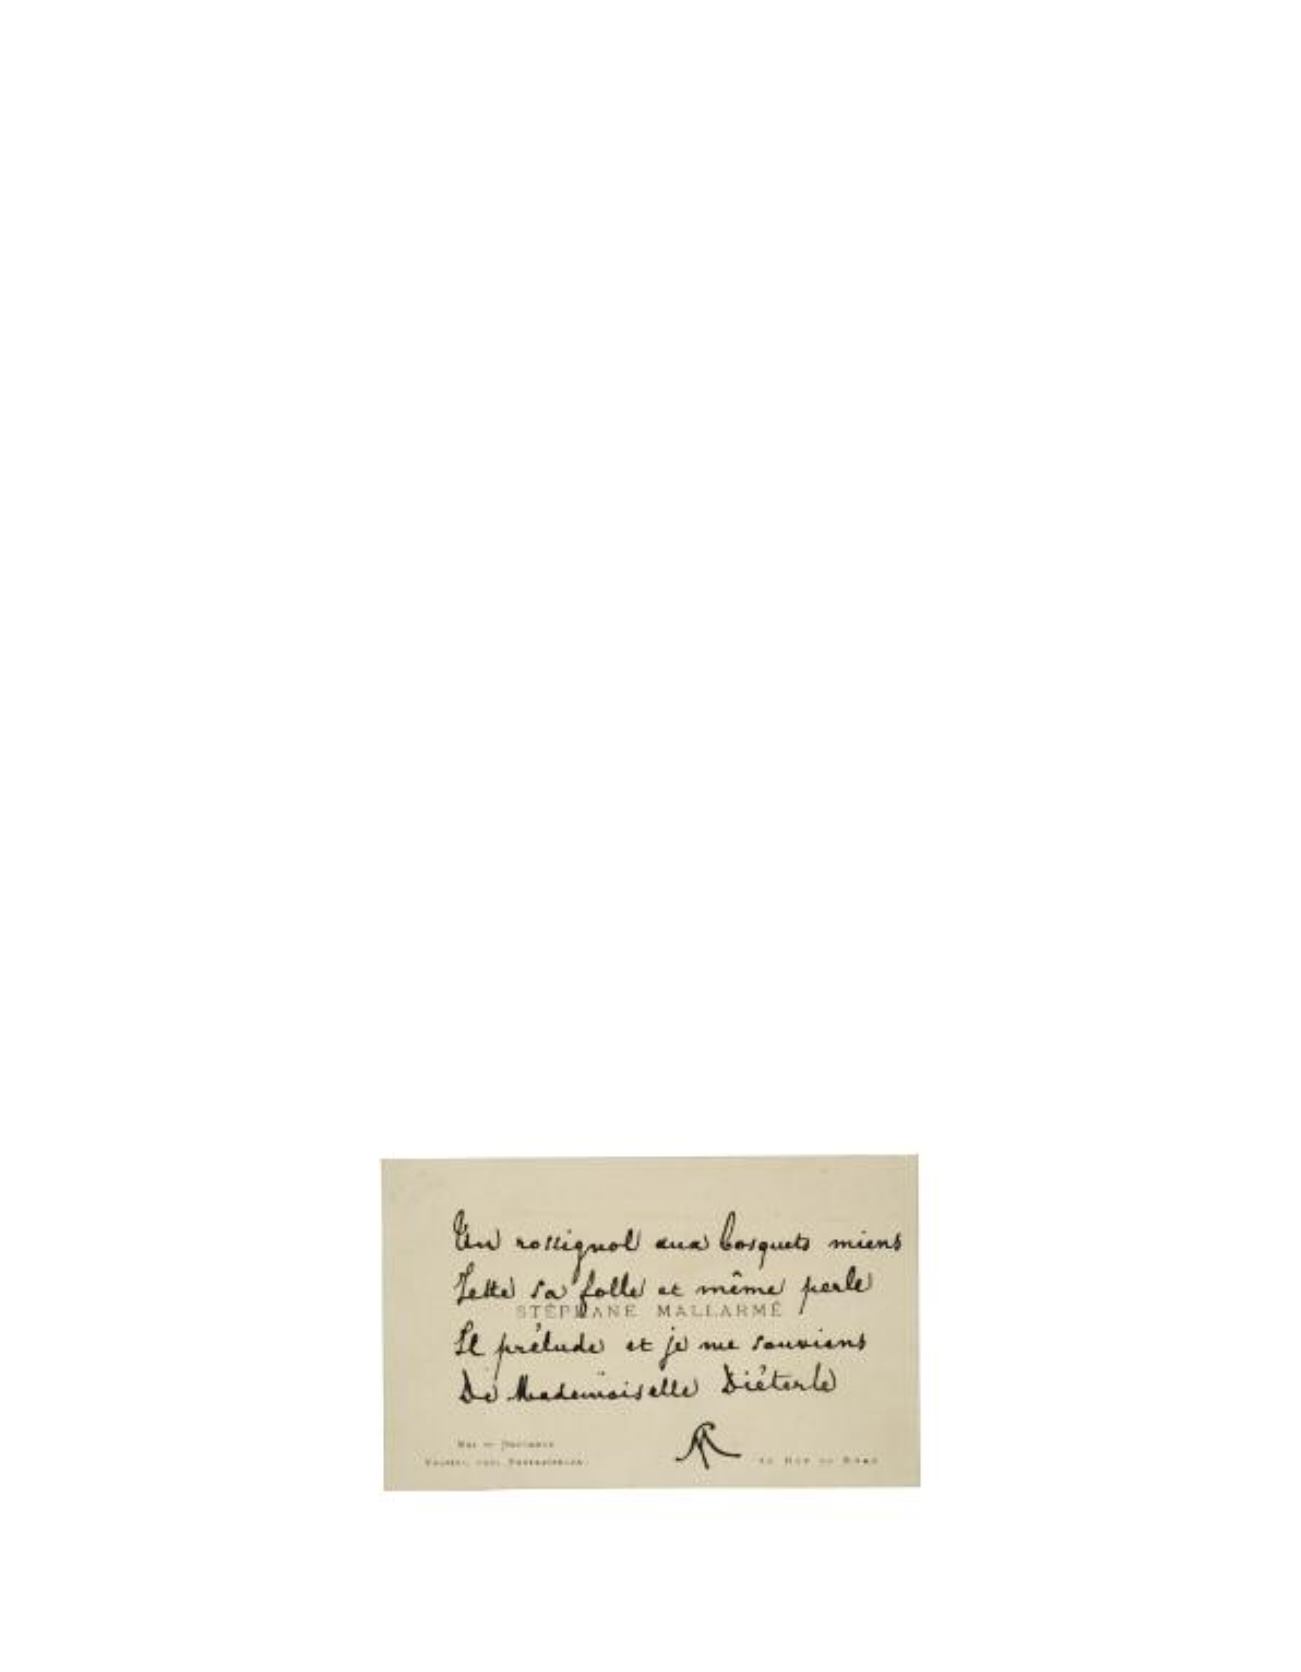 Un rossignol aux bosquets miens
Jette sa folle et même perle
STÉPHANE MALLARMÉ
Il prélude et je me souviens
De Mademoiselle Diéterle
SM